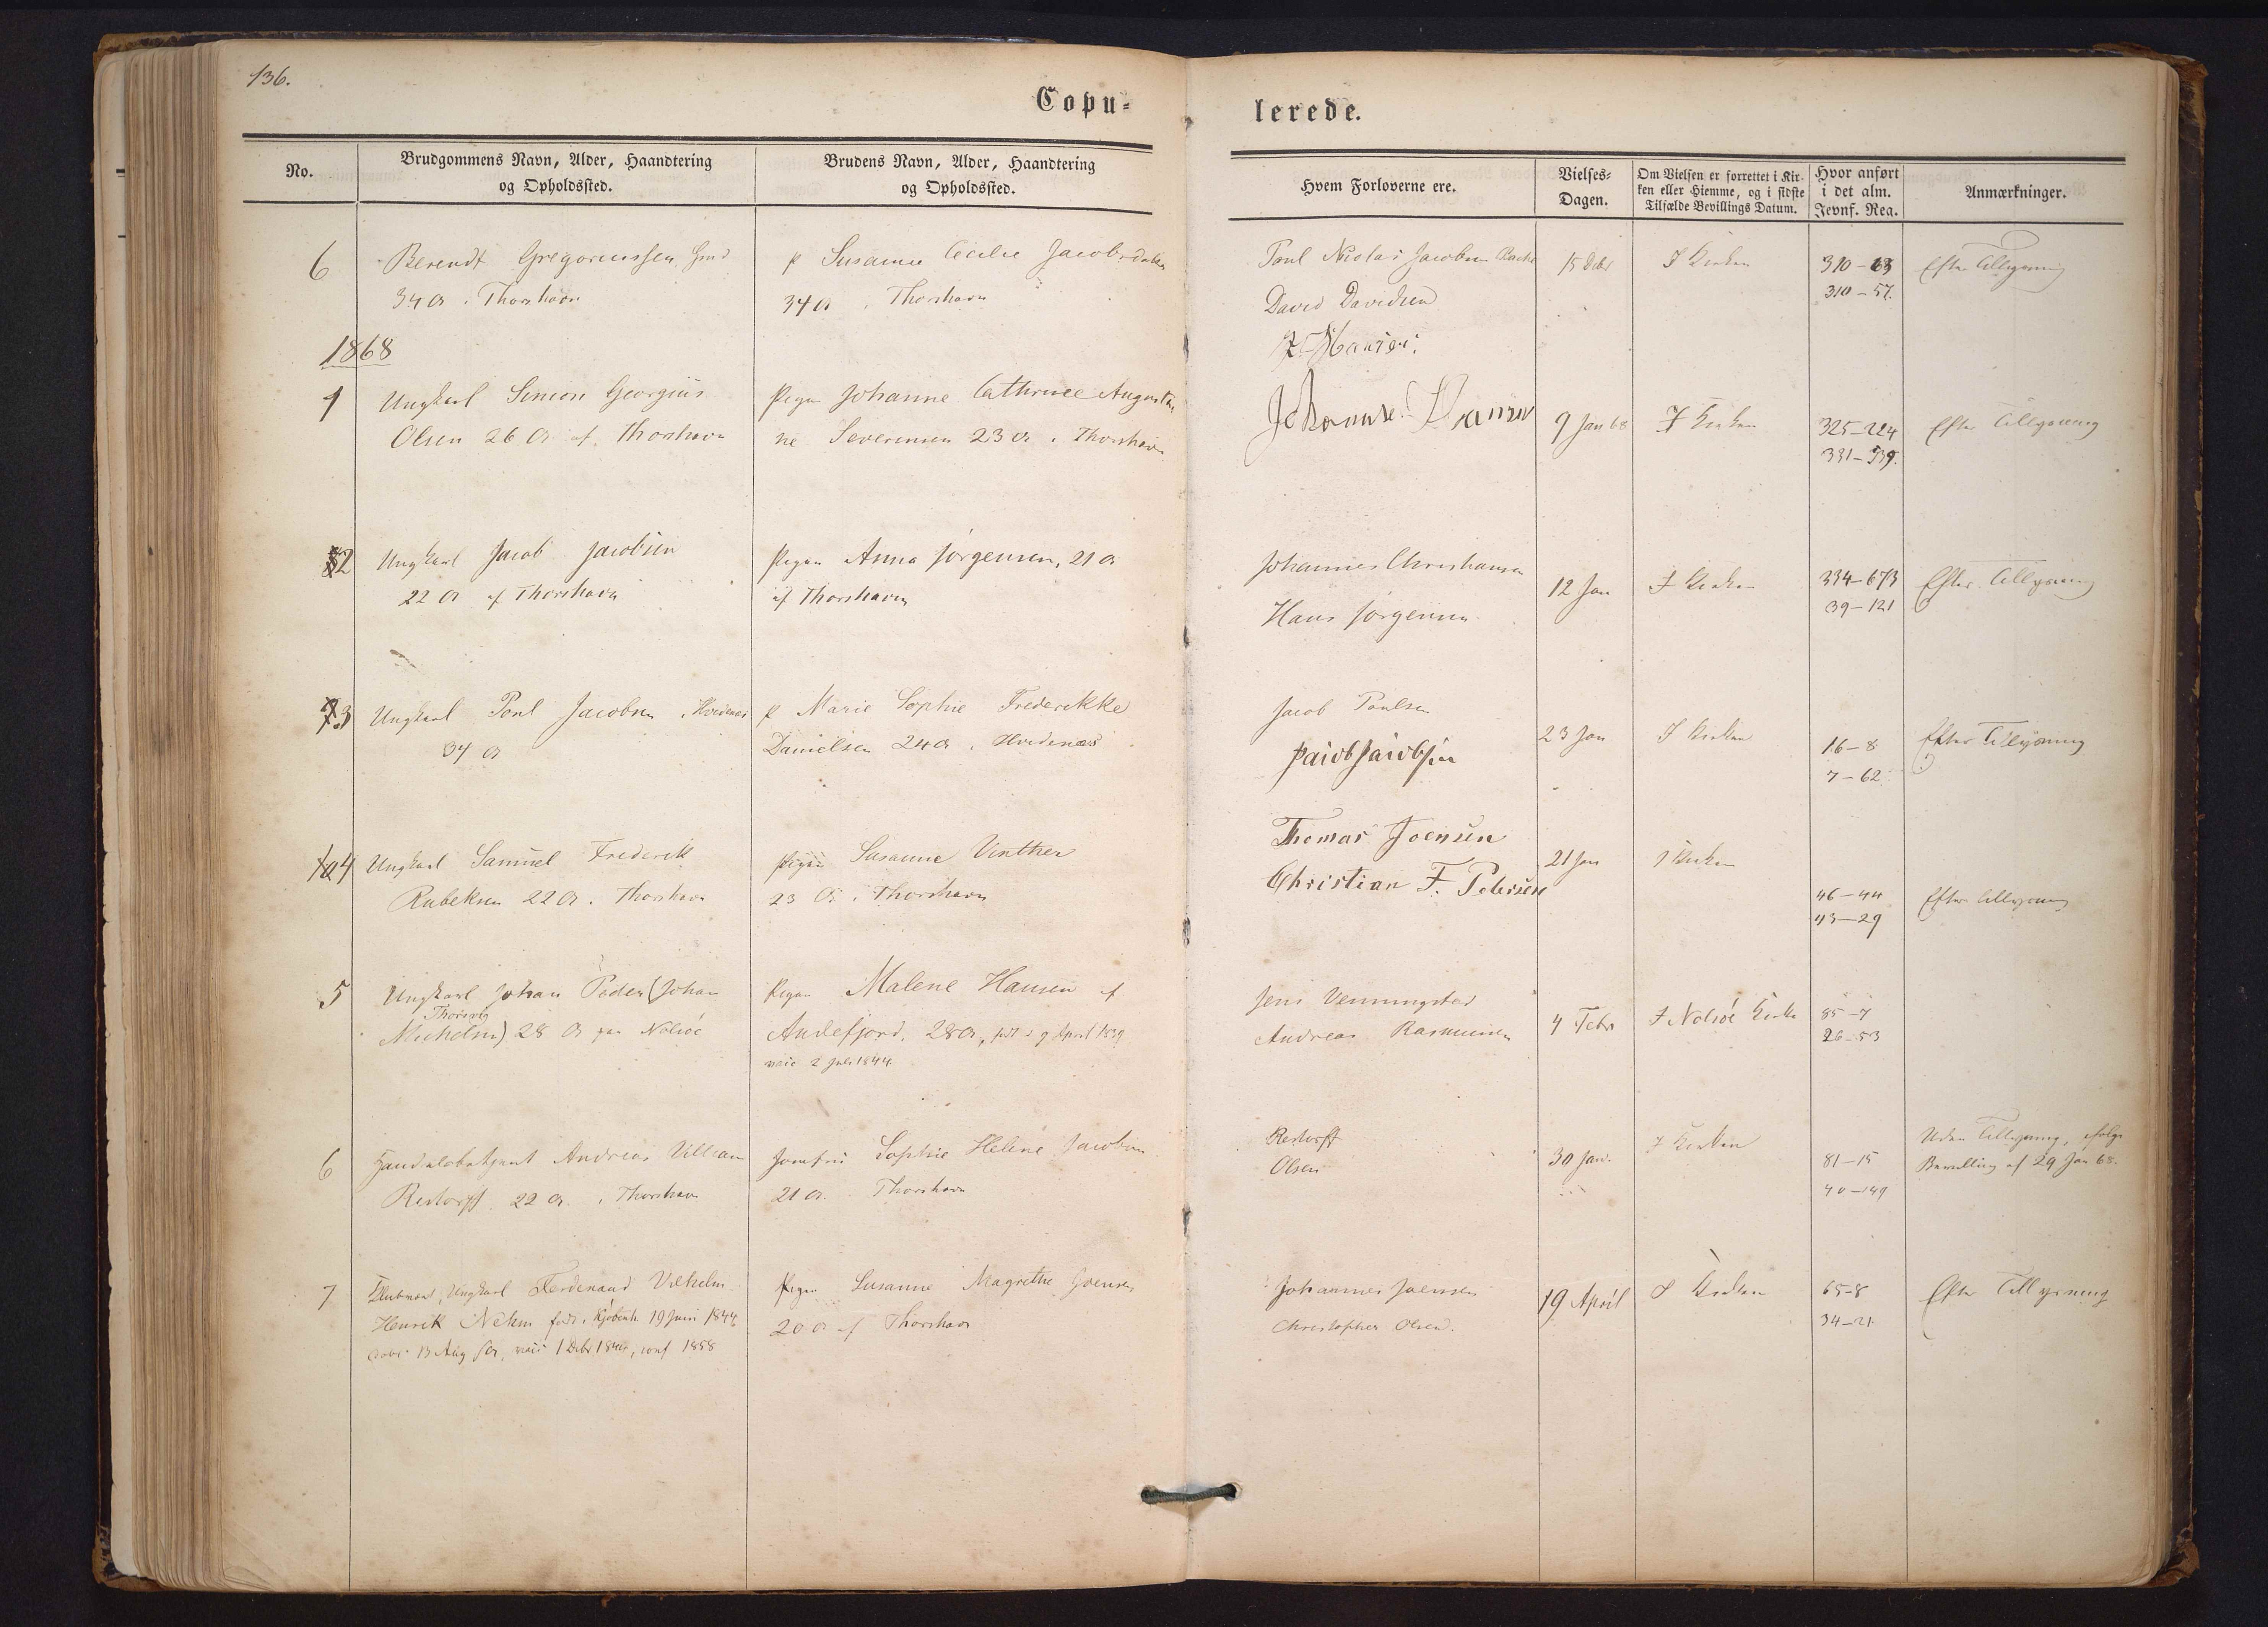 136.
Copu-
lerede.
No.
Brudgommens Navn, Alder, Haandtering
og Opholdssted.
Brudens Navn, Alder, Haandtering
og Opholdssted.
Hvem Forloverne ere.
Vielses-
Dagen.
Om Vielsen er forrettet i Kir-
ken eller Hiemme, og i sidste
Tilfælde Bevillings Datum.
Hvor anført
i det alm.
Jevnf. Reg.
Anmærkninger.
6
Berendt Gregoriussen
34 A i Thorshavn
P Susanne Cecilie Jacobsdatter
34 A i Thorshavn
Poul Nicolai Jacobsen
David Davidsen
15 Debr
I Kirken
310-63
310-57.
Efter Tillysning
1868
1
Ungkarl Simon Georgius
Olsen 26 A af Thorshavn
Pigen Johanne Cathrine Augusti
ne Severinsen 23 A i Thorshavn
J. Hansen
Johannes Hansen
9 Jan 68
I Kirken
325-224
331-539.
Efter Tillysning
2
Ungkarl Jacob Jacobsen
22 A af Thorshavn
Pigen Anna Jørgensen, 21 A
af Thorshavn
Johannes Christiansen
Hans Jørgensen
12 Jan
I Kirken
334-673
39-121
Efter Tillysning
3
Ungkarl Poul Jacobsen i Hvidenæs
34 A
P Marie Sophie Frederikke
Danielsen 24 A i Hvidenæs
Jacob Poulsen
Jacob Jacobsen
23 Jan
I Kirken
16-8
7-62
Efter Tillysning
4
Ungkarl Samuel Frederik
Rubeksen 22 A i Thorshavn
Pigen Susanne Vinther
23 A i Thorshavn
Thomas Joensen
Christian F. Petersen
21 Jan
I Kirken
46-44
43-29
Efter Tillysning
5
Ungkarl Johan Peder (Johan
Thorsvig
Michelsen) 28 A paa Nolsøe
Pigen Malene Hansen af
Andefjord, 28 A, født d 9 April 1839
vacc 2 Juli 1844
Jens Venningsted
Andreas Rasmussen
4 Febr
I Nolsøe Kirke
85-7
26-53
6
Handelsbetjent Andreas Villiam
Restorff 22 A i Thorshavn
Jomfru Sophie Helene Jacobsen
21 A. Thorshavn
Restorff
Olsen
30 Jan.
I Kirken
81-15
40-149
Uden Tillysning, ifølge
Bevilling af 29 Jan 68.
7
Ungkarl Ferdenand Vilhelm
Henrik Nehm født i Kjøbenh. 19 Juni 1844
døbt 13 Aug s A, vacc 1 Debr 1844, conf 1858
Pigen Susanne Magrethe Joensen
20 A af Thorshavn
Johannes Joensen
Christopher Olsen.
19 April
I Kirken
65-8
34-21
Efter Tillysning